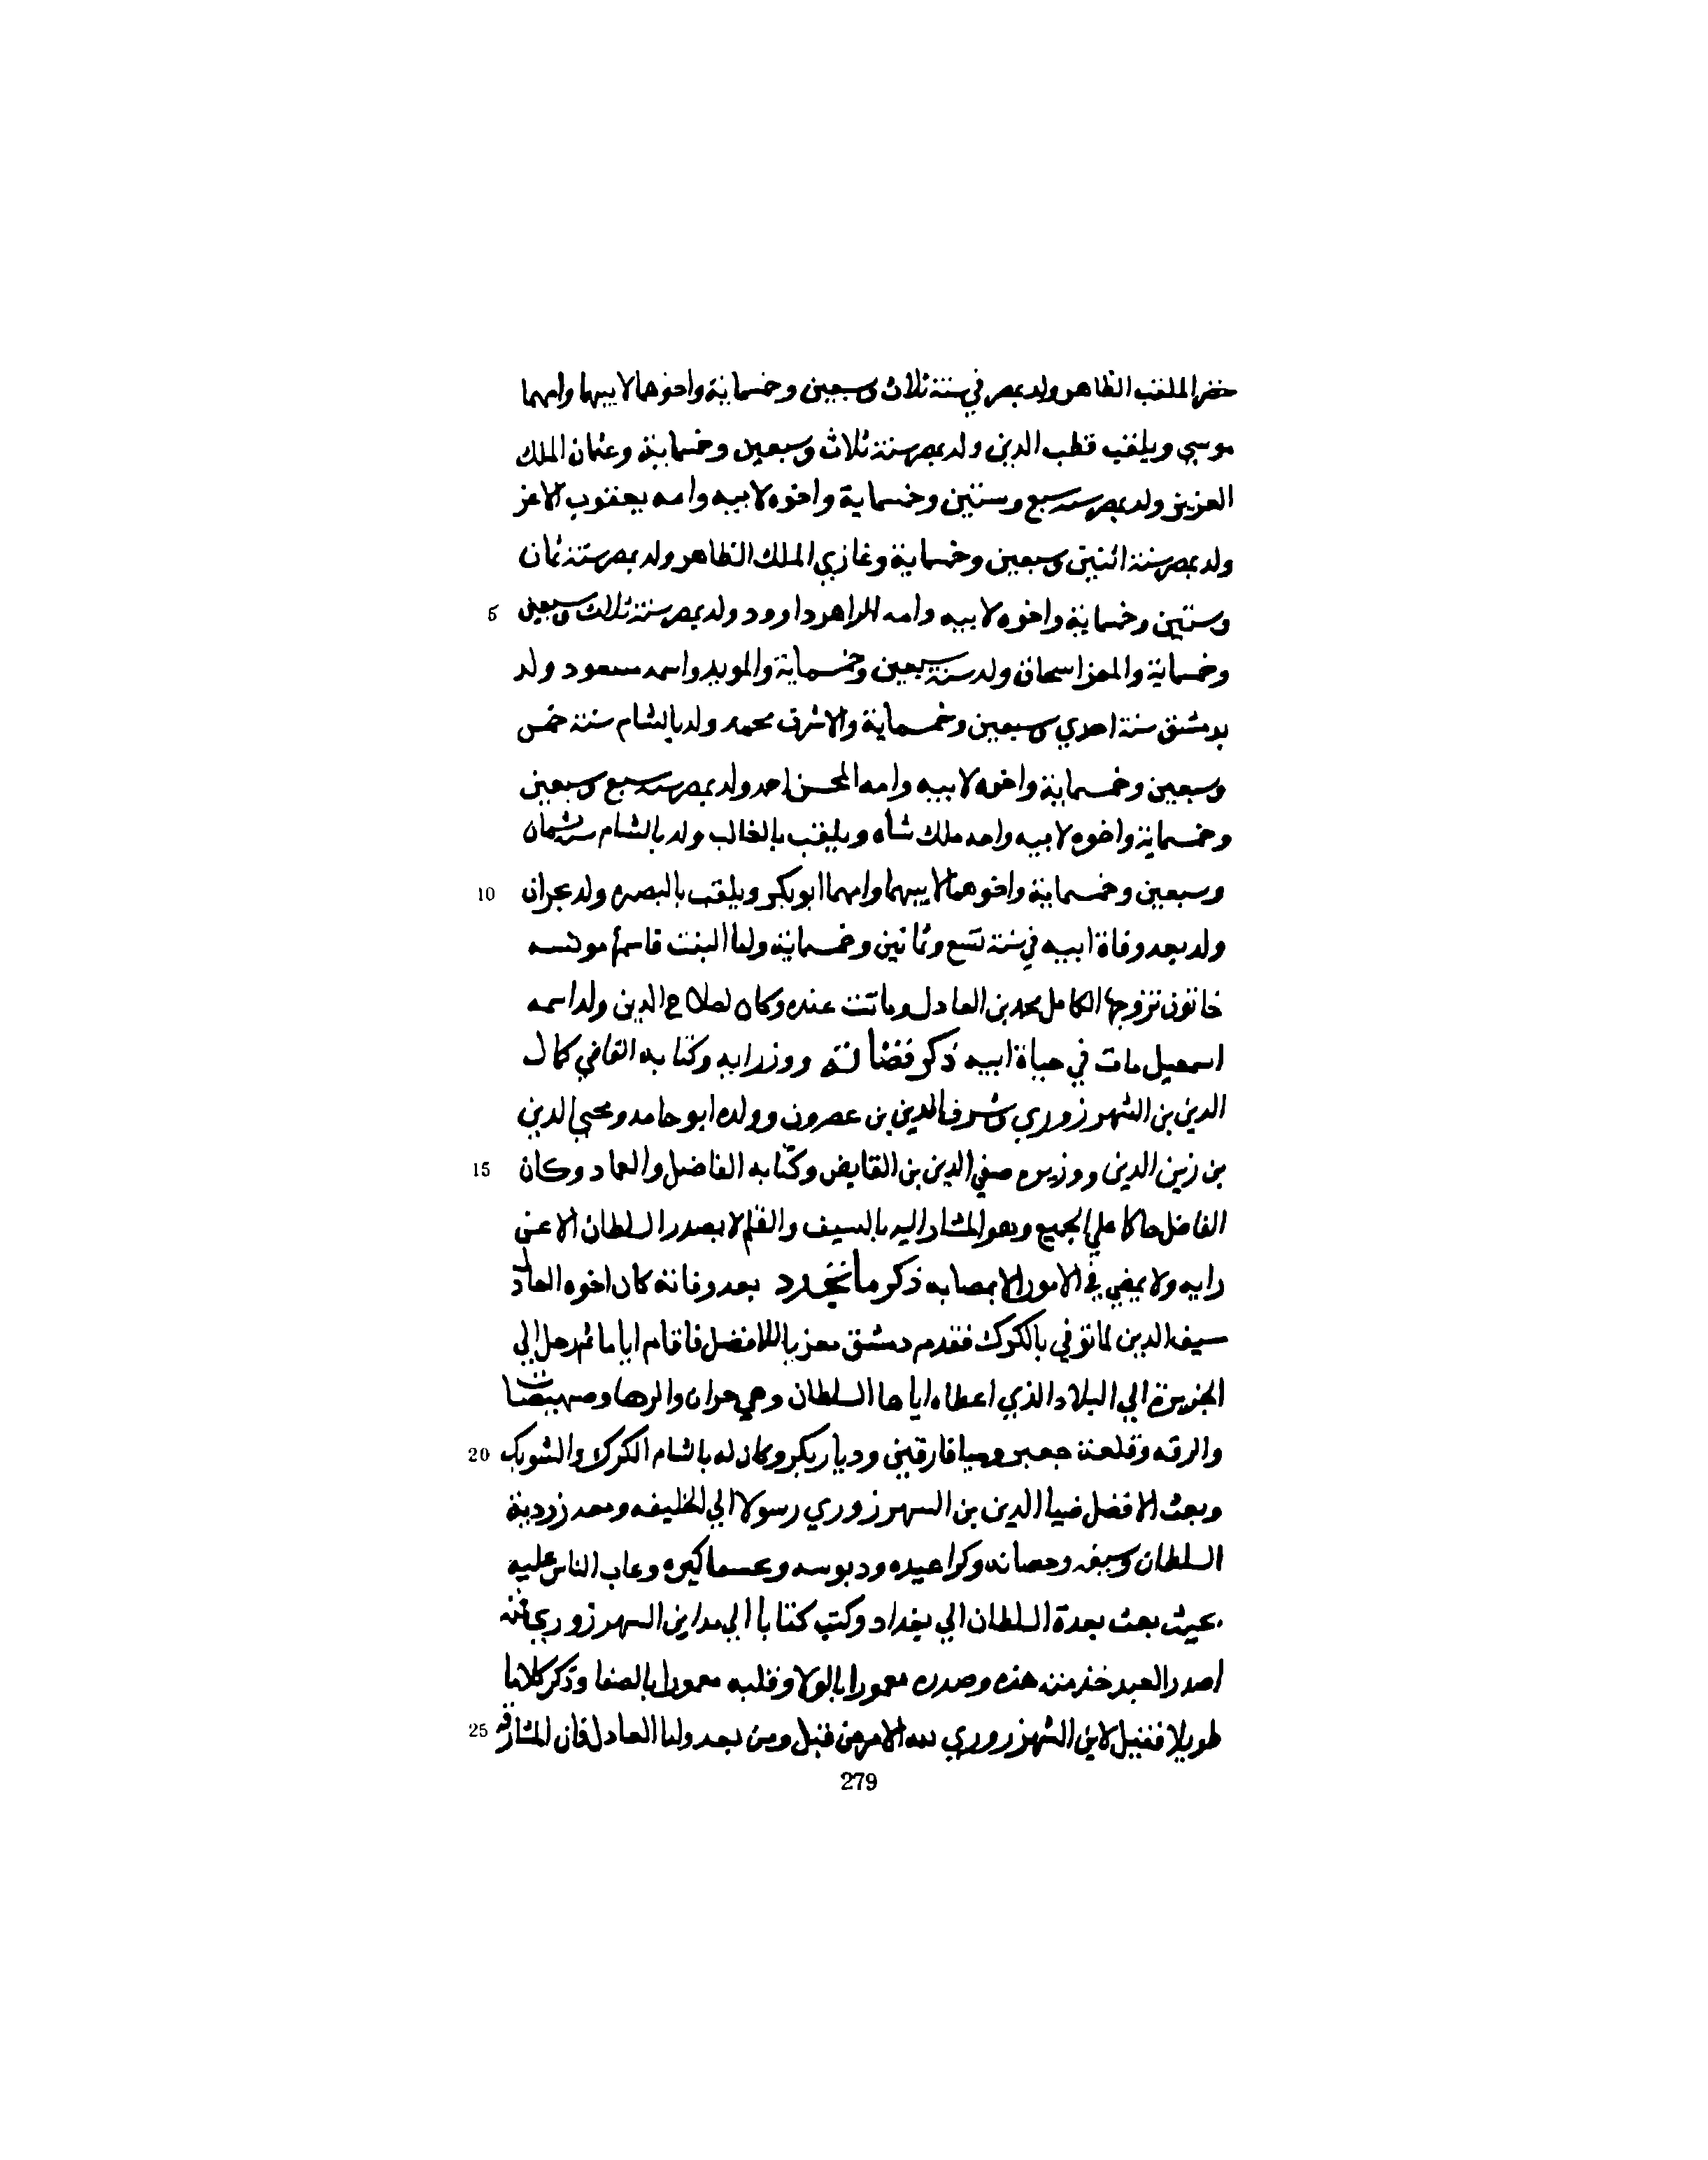 خضر الملقب الظاهر ولد بمصر في سنة ثلاث وسبعين وخمسماية واخوهما لابيهما وامهما
موسي ويلقب قطب الدين ولد بمصر سنة ثلاث وسبعين وخمسماية وعثمان الملك
العزيز ولد بمصر سنة سبع وستين وخمسماية واخوه لابيه وامه يعقوب الاعز
ولد بمصر سنة اثنتين وسبعين وخمسماية وغازي الملك الظاهر ولد بمصر سنة ثمان
5 وستين وخمسماية واخوه لابيه وامه الزاهر داوود ولد بمصر سنة ثلاث وسبعين
وخمساية والمعز اسحاق ولد سنة سبعين وخمسماية والمويد واسمه مسعود ولد
بدمشق سنة احدي وسبعين وخمسماية والاشرف محمد ولد بالشام سنة خمس
وسبعين وخمسماية واخوه لابيه وامه المحسن احمد ولد بمصر سنة سبع وسبعين
وخمسماية واخوه لابيه وامه ملك شاه ويلقب بالغالب ولد بالشام سنة ثمان
10 وسبعين وخمسماية واخوهما لابيهما وامهما ابو بكر ويلقب بالبصره ولد بحران
ولد بعد وفاة ابيه في سنة تسع وثمانين وخمسماية ولما البنت موئسه
خاتون تزوجها الكامل محمد بن العادل وماتت عنده وكان لصلاح الدين ولد اسمه
اسمعيل مات في حياة ابيه ذكر قضاته ووزرايه وكتابه القاضي كمال
الدين بن الشهرزوري وشرف الدين بن عصرون وولده ابو حامد ومحيي الدين
15 بن زين الدين ووزيره صفي الدين بن القابض وكتابه الفاضل والعماد وكان
الفاضل حاكما علي الجميع وهو المشار اليه بالسيف والقلم لا يصدر السلطان الا عن
رايه ولا يمضي في الامور الا بمصابه ذكر ما تجدد بعد وفاته كان اخوه العادل
سيف الدين لما توفي بالكرك فقدم دمشق معزيا للافضل فاقام اياما ثم رحل الي
الجزيرة الي البلاد الذي اعطاه اياها السلطان وهي حران والرها وسميساط
20 والرقه وقلعة جعبر وميافارقين وديار بكر وكان له بالشام الكرك والشوبك
وبعث الافضل ضيا الدين بن السهرزوري رسولا الي الخليفه ومعه زردية
السلطان وسيفه وحصانه وكزاعيده ودبوسه وعاب الناس عليه
بحيث بعث بعدة السلطان الي بغداد وكتب كتابا الي السهرزوري
اصدر العبد خدمته هذه وصدره معمورا بالولا وقلبه معمورا بالصفا وذكر كلاما
25 طويلا فقيل لابن الشهرزوري لله الامر من قبل ومن بعد ولما العادل فان المشارقه
279